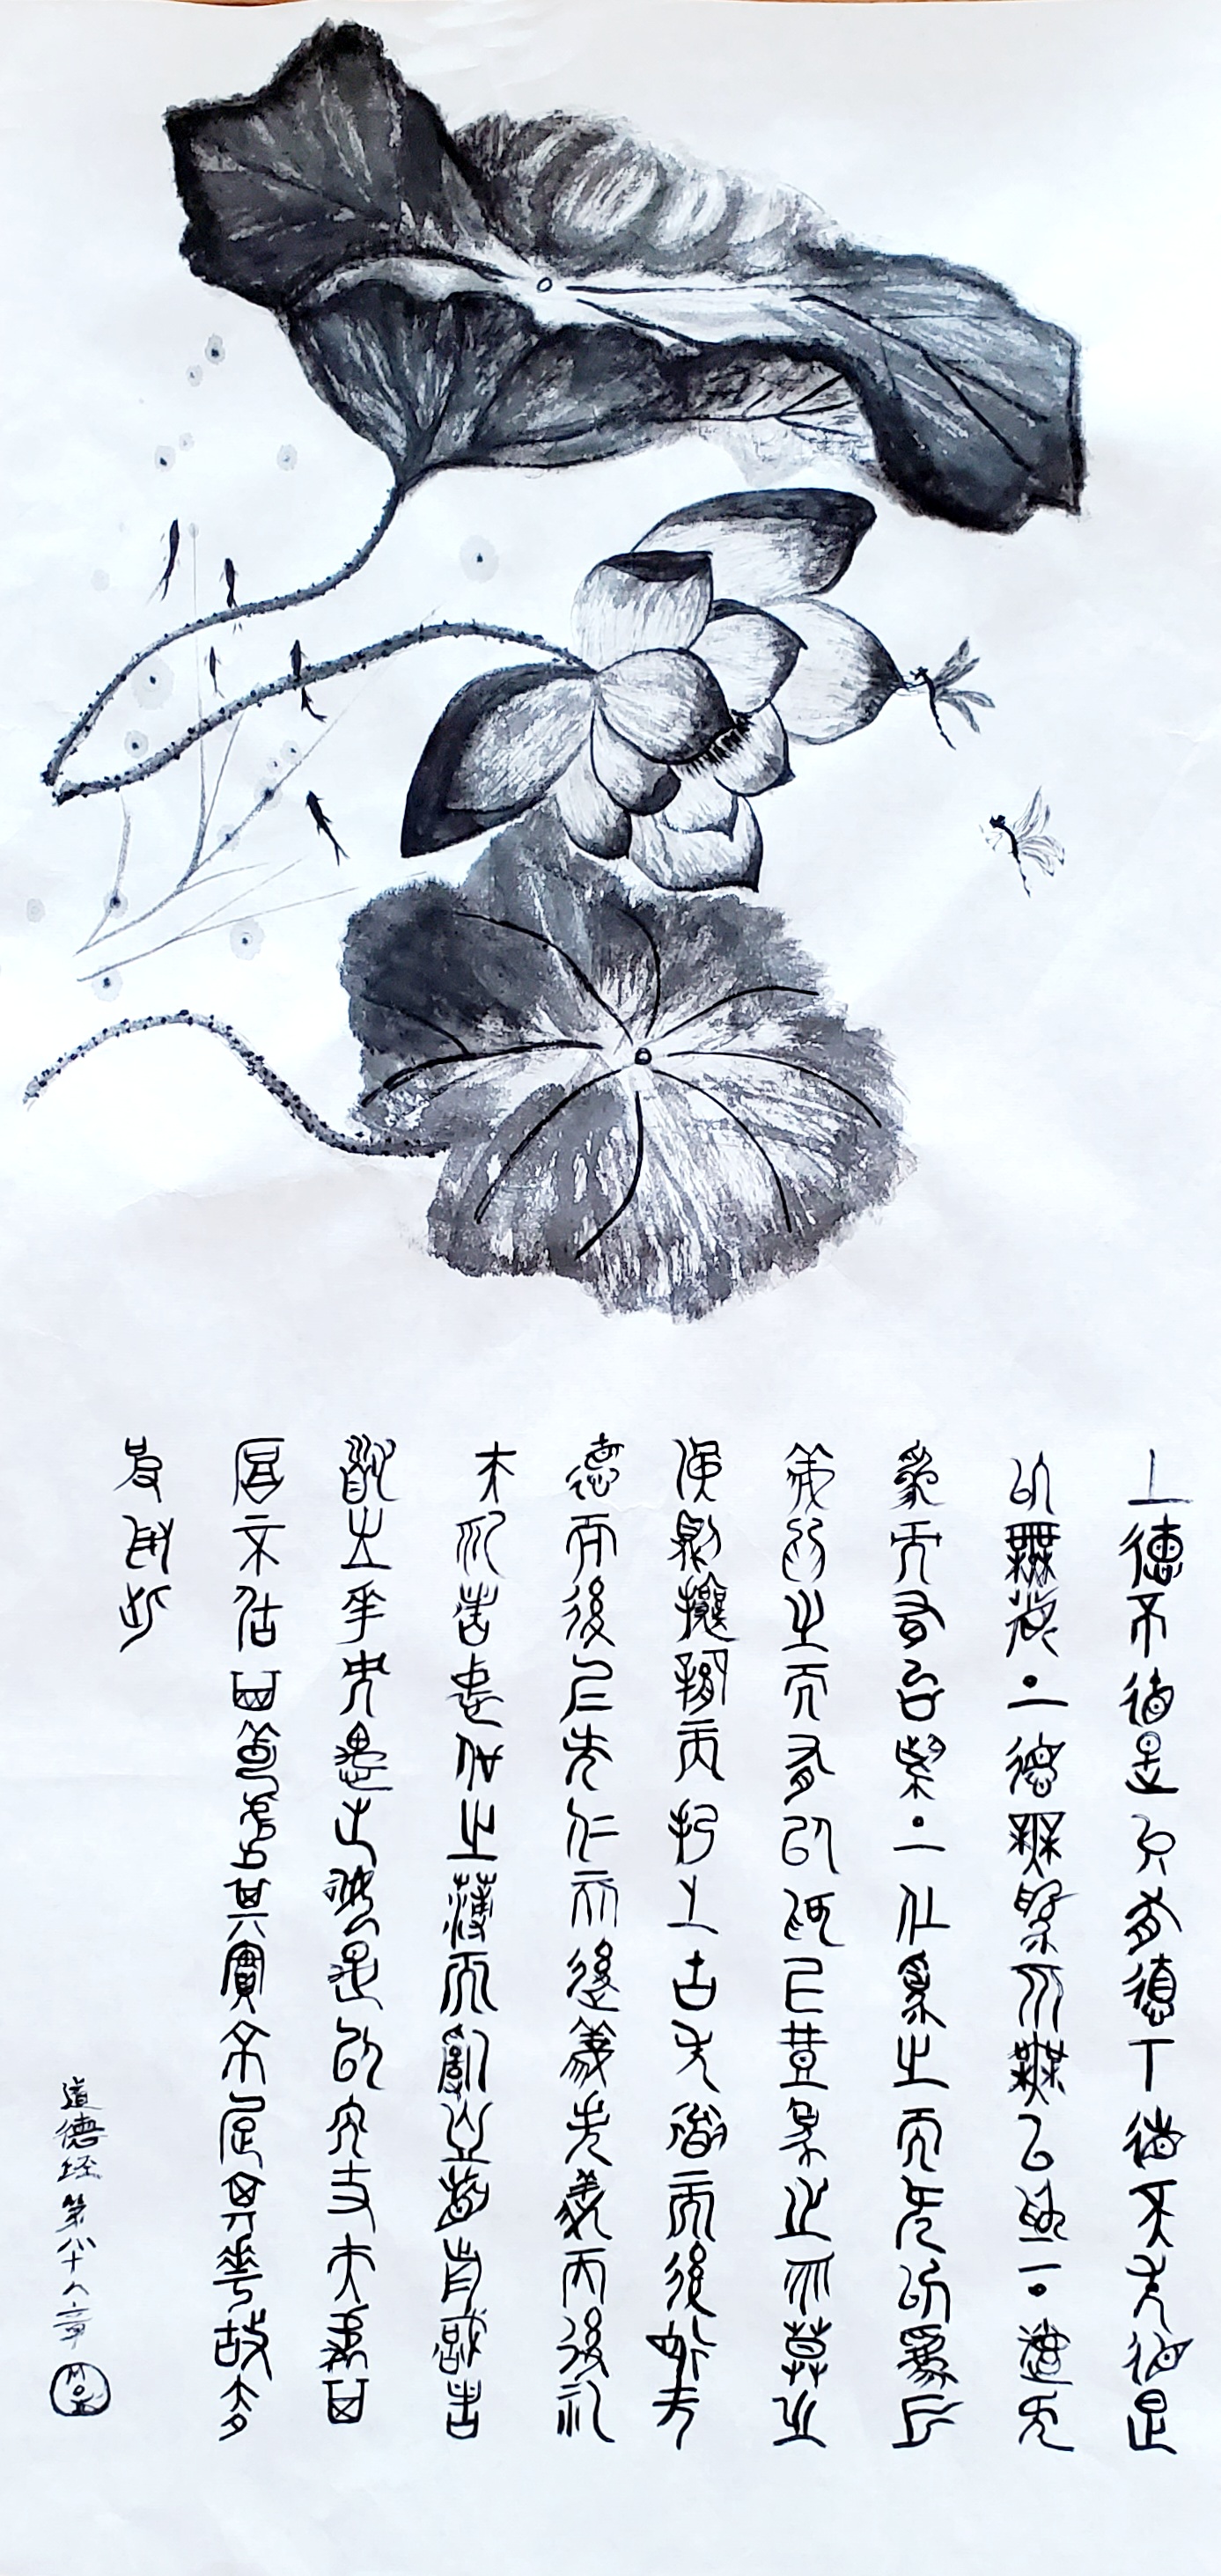 上德不德是以有德下德不失德是
以無德・上德無為而無以為・下德
為而有以為・上仁為之而無以為上
義為之而有以為上禮為之而莫之
應則攘臂而扔之故失道而後德失
德而後仁失仁而後義失義而後禮
夫禮者忠信之薄而亂之首前識者
道之華而愚之始是以大丈夫處其
厚不居其薄處其實不居其華故去
彼取此
道德经第三十八章